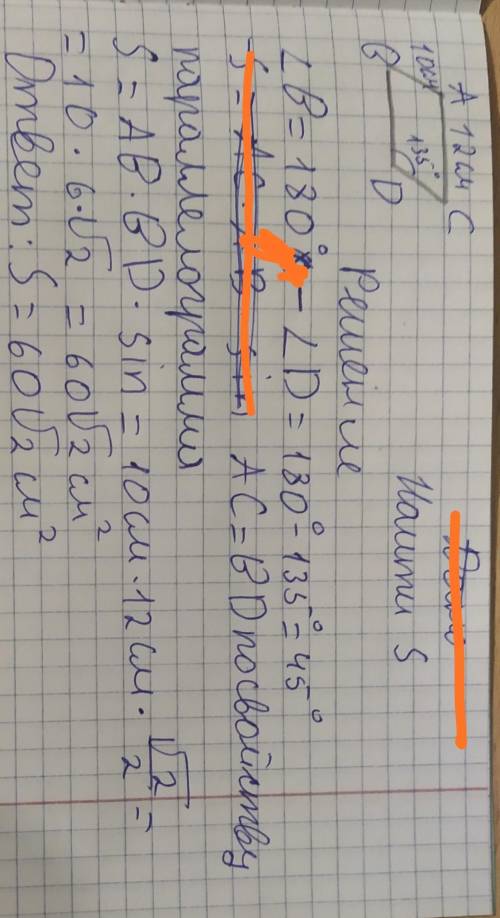 A 12см C
10см 135°
B D
Найти S
Решение
∠B = 180° - ∠D = 180° - 135° = 45°
AC = BD по свойству
параллелограмма
S = AB · BD · sin = 10см · 12см · √2/2 =
= 10 · 6 · √2 = 60√2 см²
Ответ: S = 60√2 см²